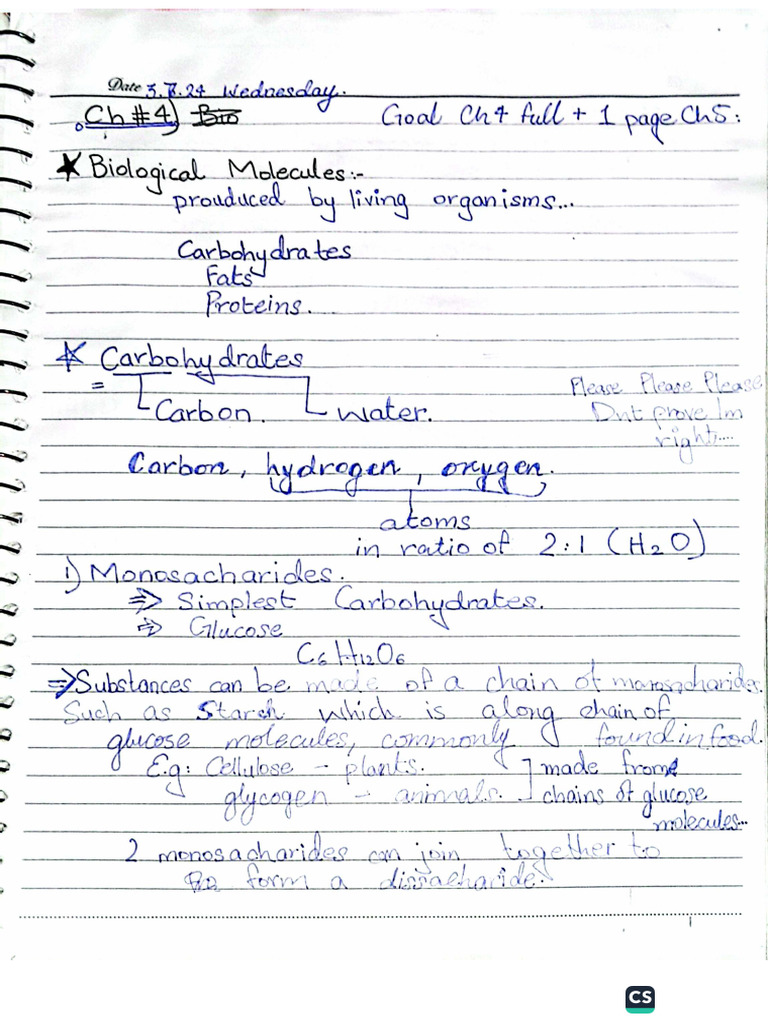 Date 3.7.24 Wednesday.
Ch #4) Bio Goal Ch4 full + 1 page Ch5:
Biological Molecules:-
prouduced by living organisms...
Carbohydrates
Fats
Proteins.
Carbohydrates
Carbon. water.
Please Please Please
Dnt prove Im
right....
Carbon, hydrogen, oxygen.
atoms
in ratio of 2:1 (H2O)
i) Monosacharides.
⇒ Simplest Carbohydrates.
⇒ Glucose
C6H12O6
⇒ Substances can be made of a chain of monosacharides.
Such as Starch which is along chain of
glucose molecules, commonly found in food.
E.g: Cellulose - plants. made from
glycogen - animals. chains of glucose
molecules...
2 monosacharides can join together to
form a dissacharide.
1
CS